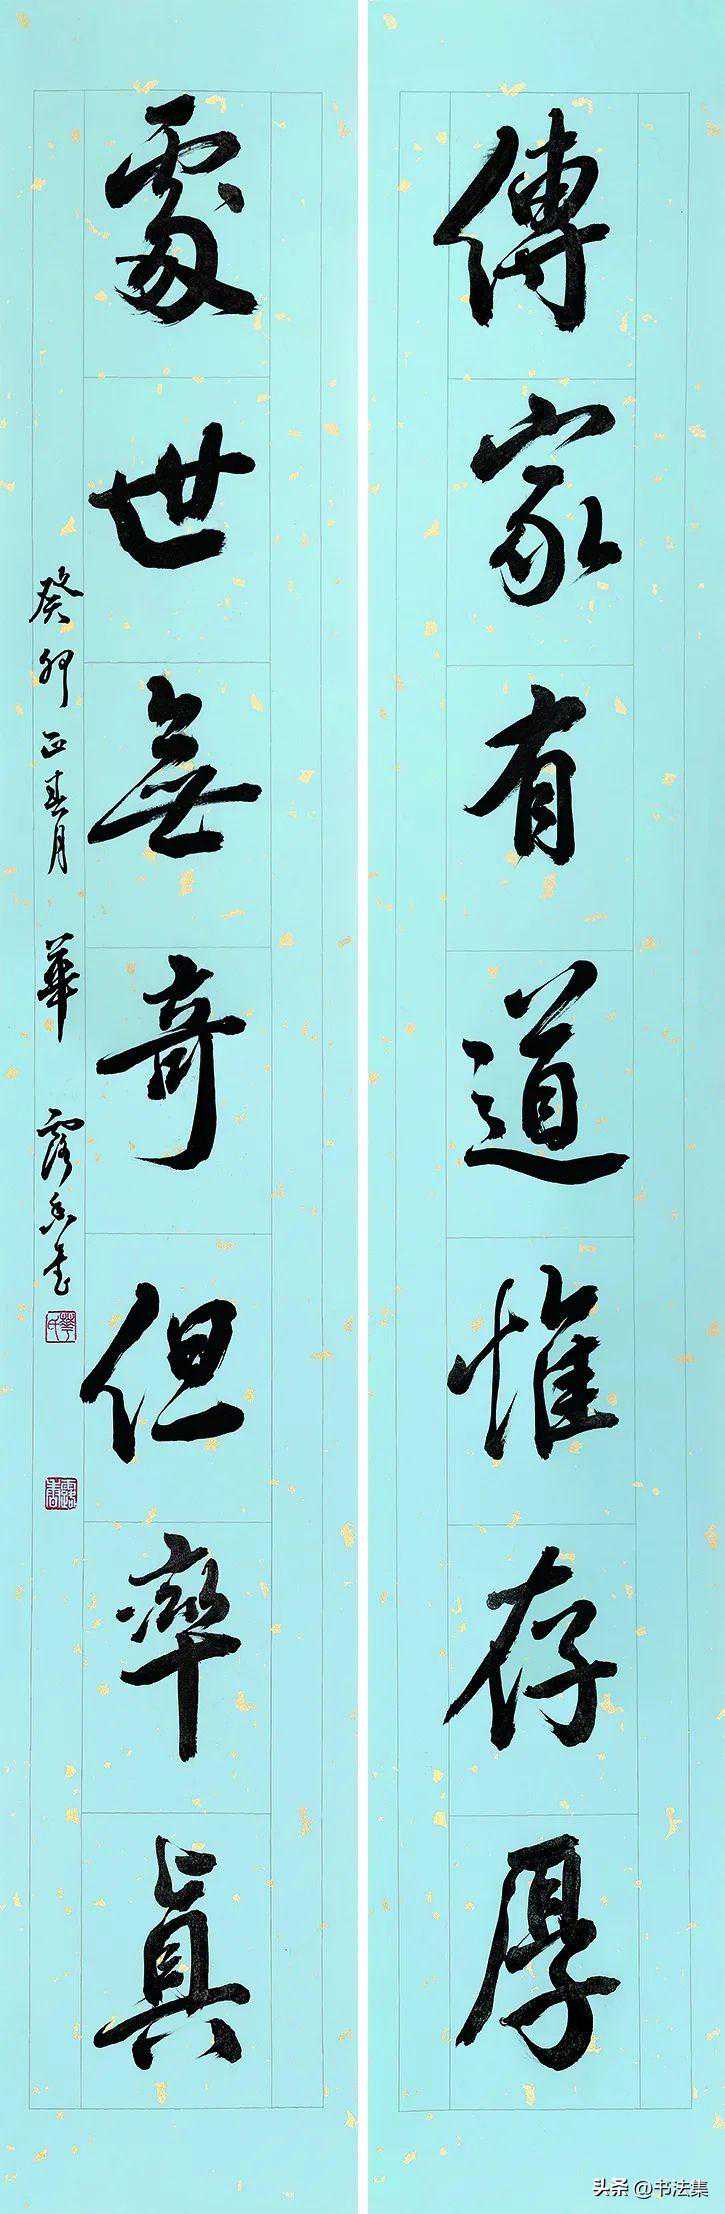 傳家有道惟存厚
處世無奇但率真
癸卯正春月 華露
头条 @书法集